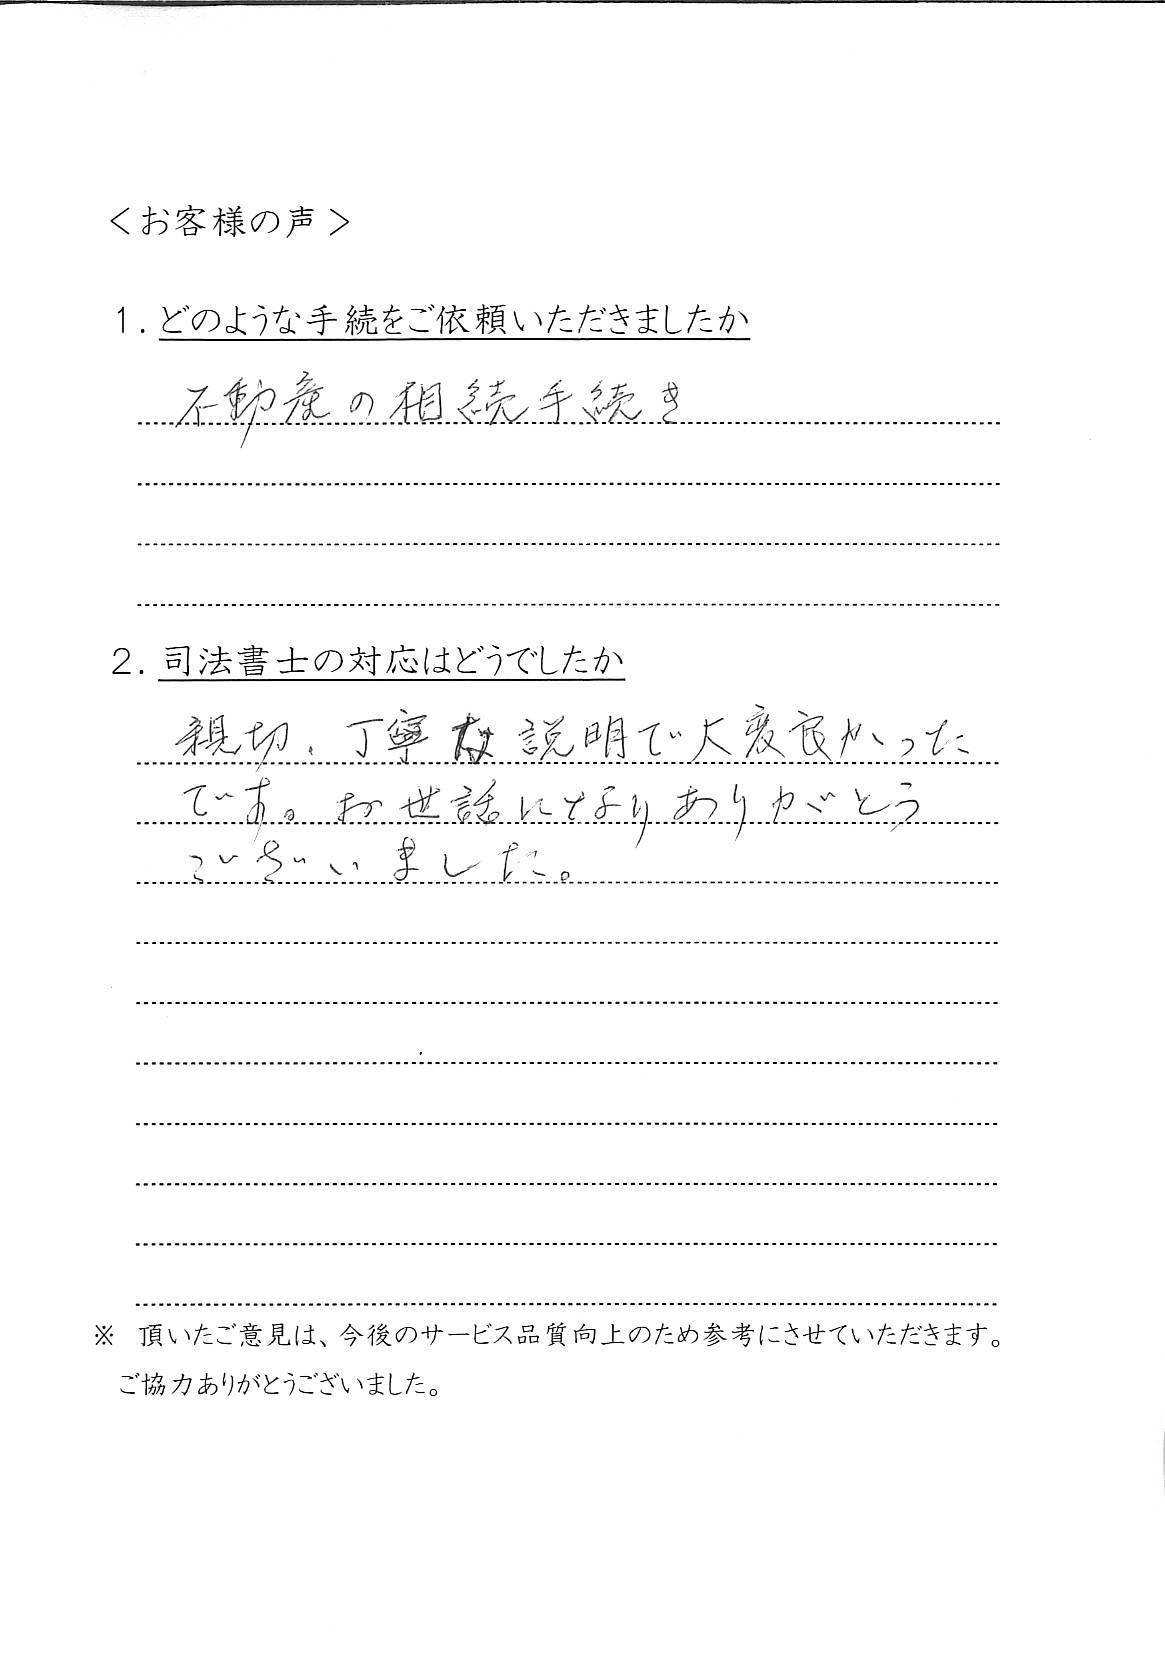 ＜お客様の声＞
１．どのような手続をご依頼いただきましたか
不動産の相続手続き
２．司法書士の対応はどうでしたか
親切、丁寧な説明で大変良かった
です。お世話になりありがとう
ございました。
※　頂いたご意見は、今後のサービス品質向上のため参考にさせていただきます。
ご協力ありがとうございました。